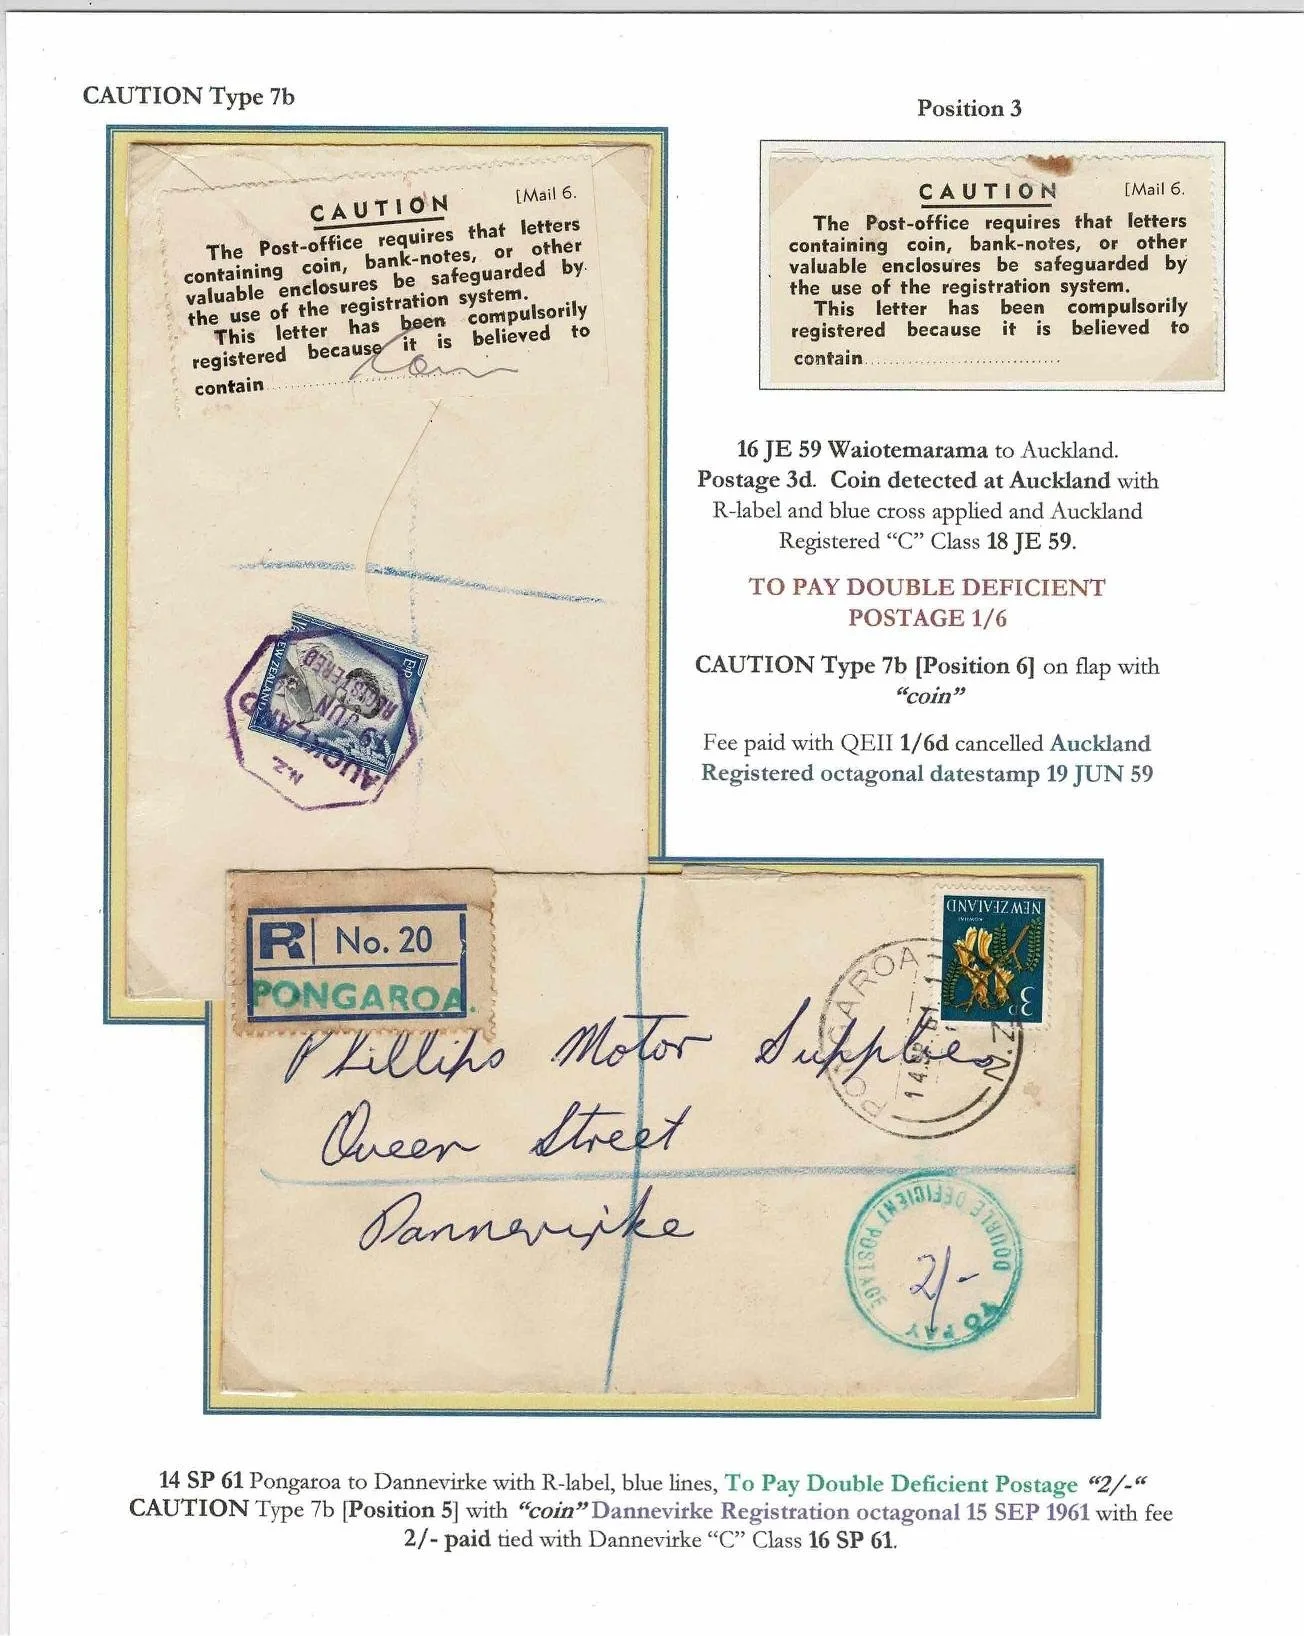 CAUTION Type 7b
Position 3
CAUTION [Mail 6.
The Post-office requires that letters
containing coin, bank-notes, or other
valuable enclosures be safeguarded by
the use of the registration system.
This letter has been compulsorily
registered because it is believed to
contain..............................
Coin
CAUTION [Mail 6.
The Post-office requires that letters
containing coin, bank-notes, or other
valuable enclosures be safeguarded by
the use of the registration system.
This letter has been compulsorily
registered because it is believed to
contain..............................
16 JE 59 Waiotemarama to Auckland.
Postage 3d. Coin detected at Auckland with
R-label and blue cross applied and Auckland
Registered “C” Class 18 JE 59.
TO PAY DOUBLE DEFICIENT
POSTAGE 1/6
CAUTION Type 7b [Position 6] on flap with
“coin”
Fee paid with QEII 1/6d cancelled Auckland
Registered octagonal datestamp 19 JUN 59
NEW ZEALAND
REGISTERED
JUN 59
AUCKLAND
N.Z.
R No. 20
PONGAROA.
NEW ZEALAND
KOWHAI
3D
PONGAROA
14 SP 61
N.Z.
Phillips Motor Supplies
Queen Street
Dannevirke
TO PAY
DOUBLE DEFICIENT POSTAGE
2/-
14 SP 61 Pongaroa to Dannevirke with R-label, blue lines, To Pay Double Deficient Postage “2/-“
CAUTION Type 7b [Position 5] with “coin” Dannevirke Registration octagonal 15 SEP 1961 with fee
2/- paid tied with Dannevirke “C” Class 16 SP 61.